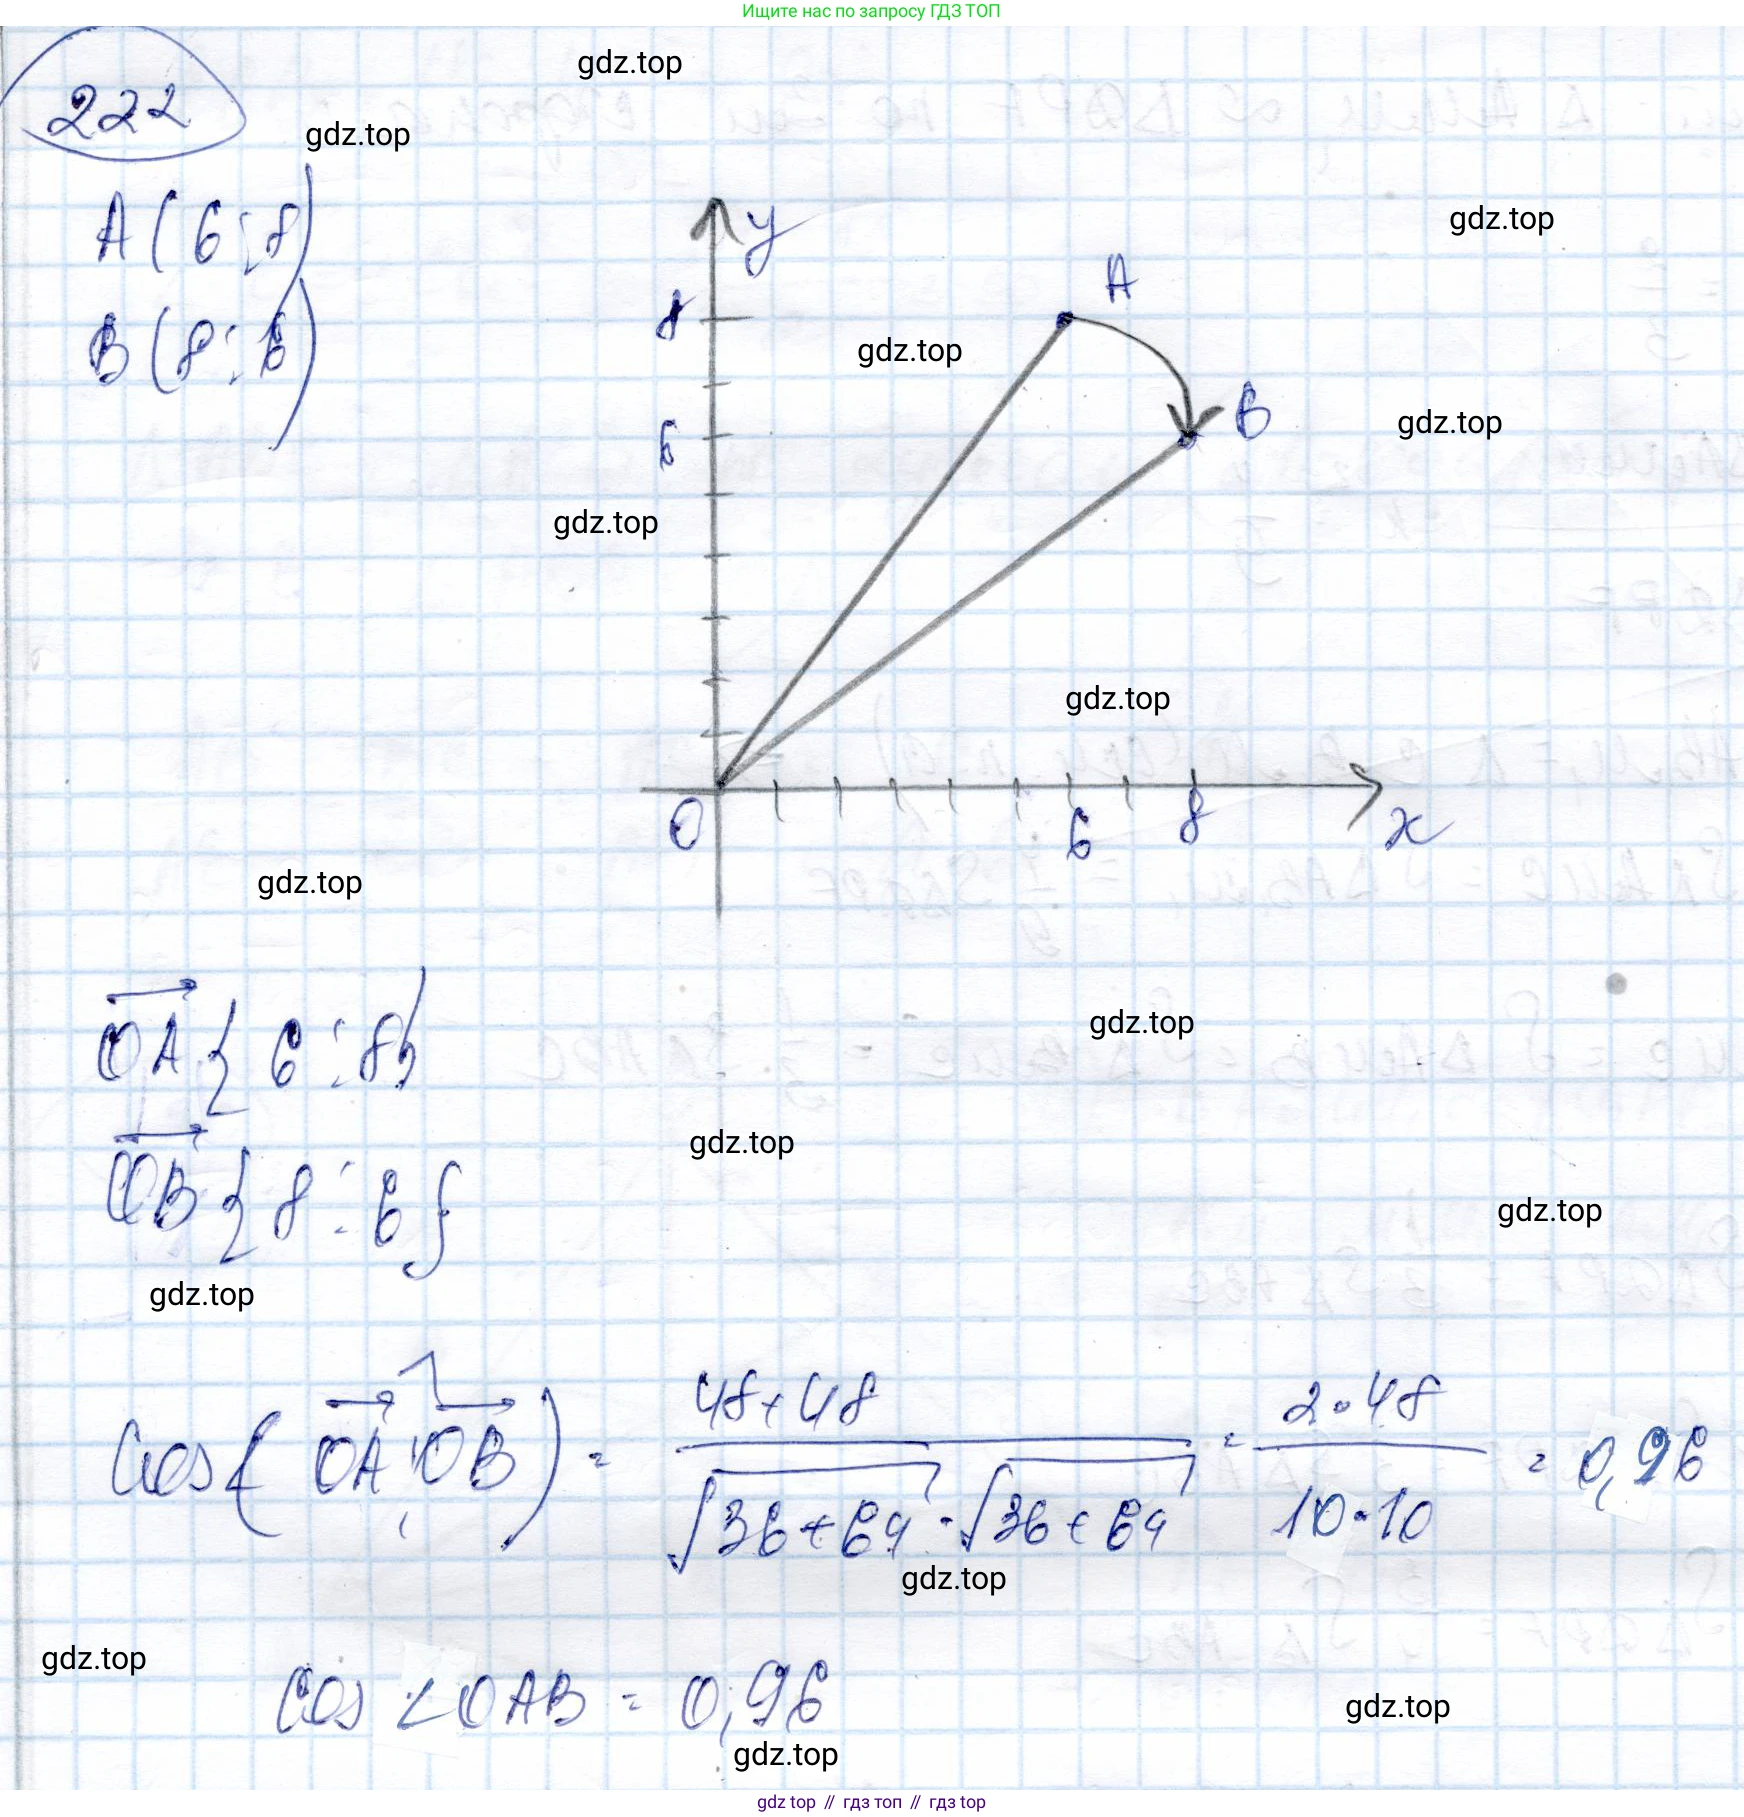 Ищите нас по запросу ГДЗ ТОП
gdz.top
222
gdz.top
A(6;8)
gdz.top
y
A
B(8;6)
8
gdz.top
B
gdz.top
6
gdz.top
gdz.top
O
6
8
x
gdz.top
OA{6;8}
gdz.top
OB{8;6}
gdz.top
gdz.top
gdz.top
cos(OA,^OB) = 48+48 / √36+64 · √36+64 = 2·48 / 10·10 = 0,96
gdz.top
gdz.top
cos ∠OAB = 0,96
gdz.top
gdz.top
gdz top // гдз топ // gdz top